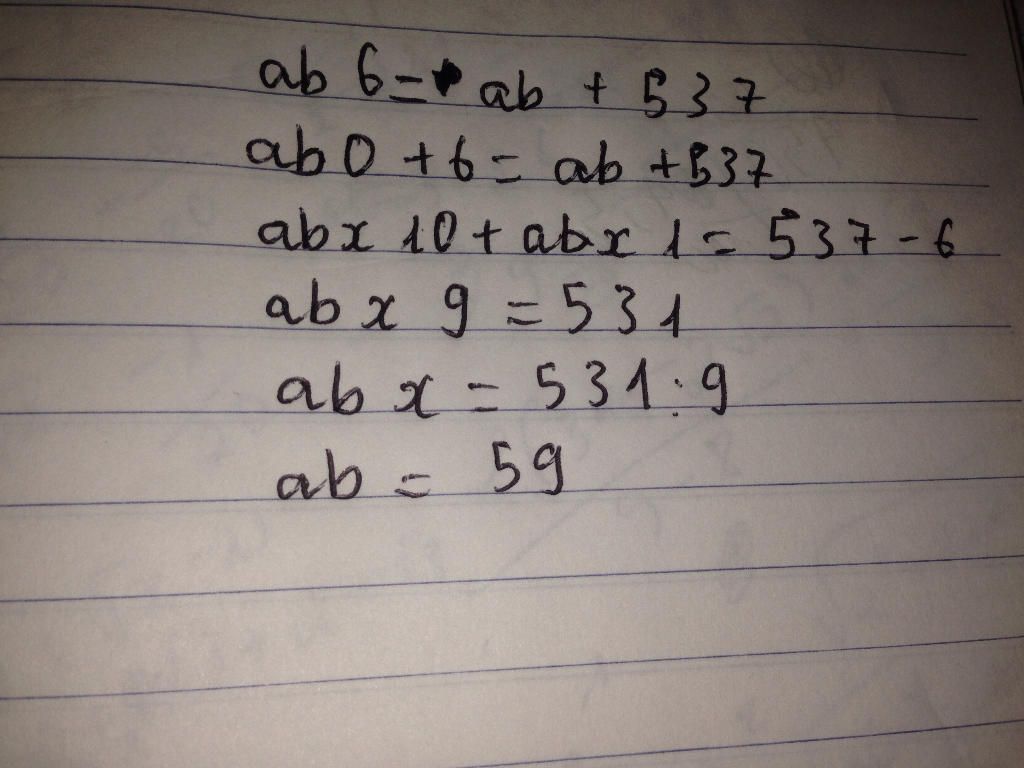 ab 6 = ab + 537
ab 0 + 6 = ab + 537
ab x 10 + ab x 1 = 537 - 6
ab x 9 = 531
ab x = 531 : 9
ab = 59